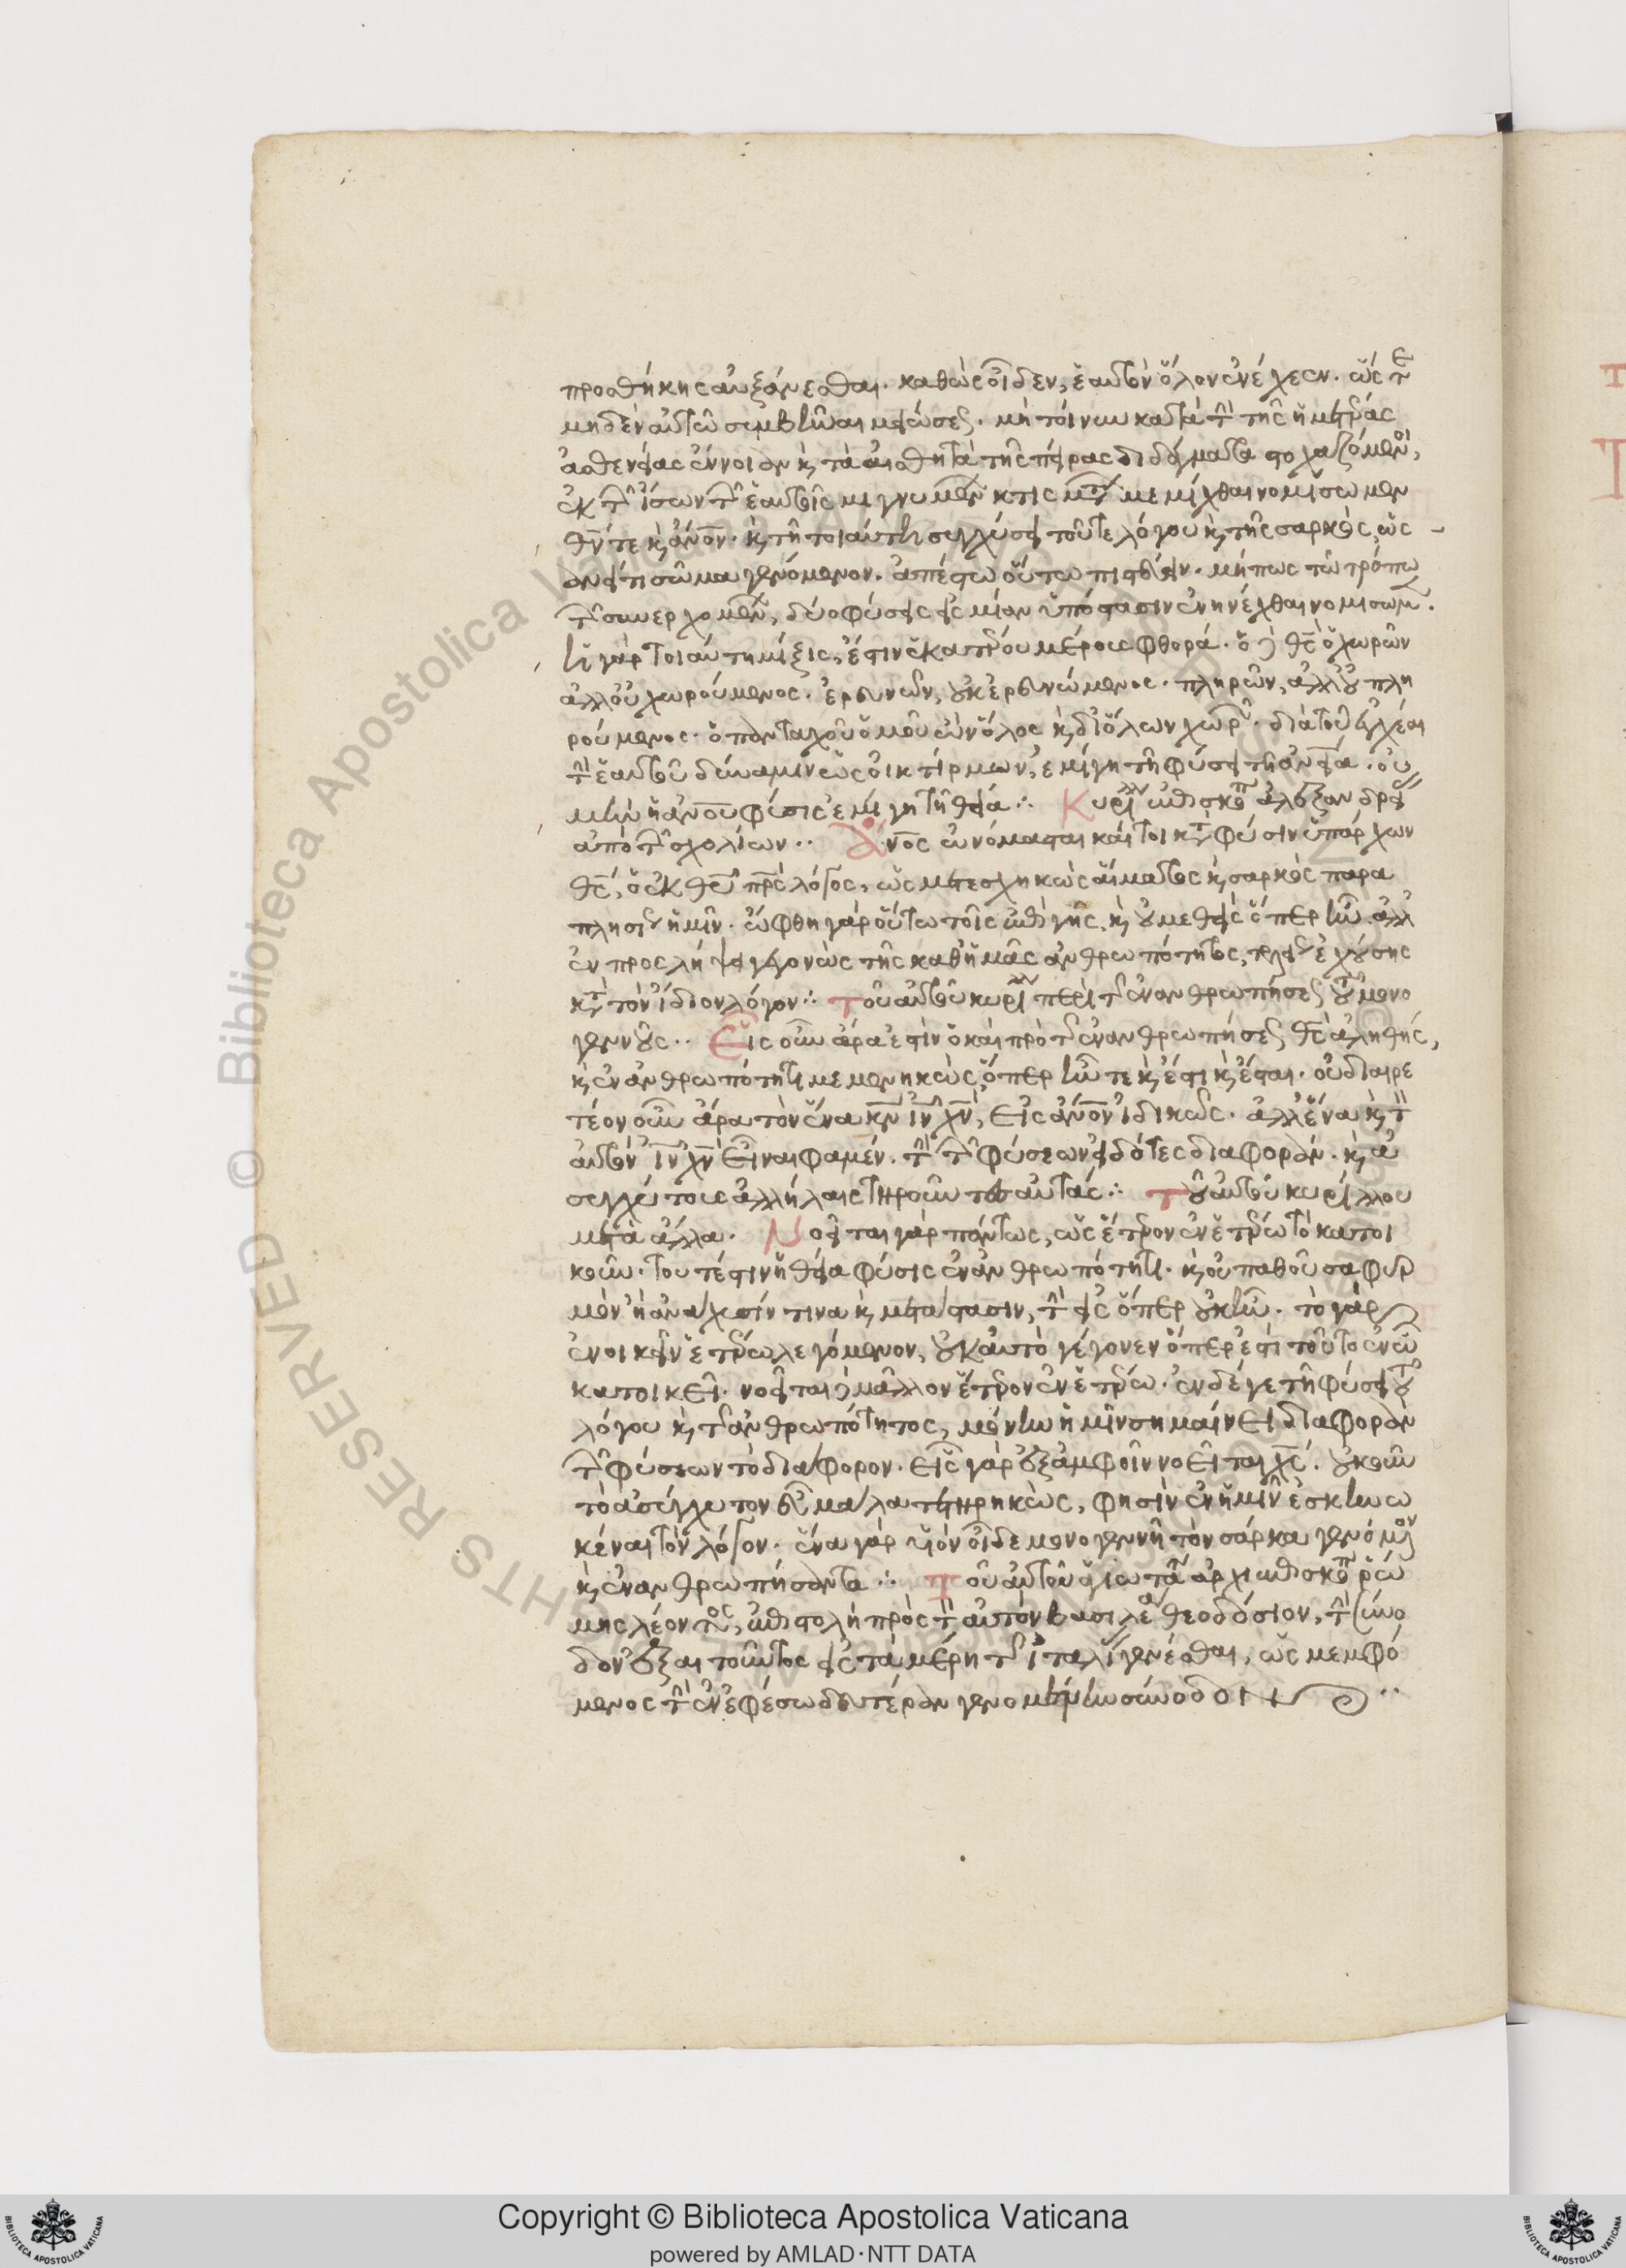 προσθήκης αὐξάνεσθαι. καθὼς οἶδεν, ἑαυτὸν ὅλον ἐνέχεεν. ὡς
μηδὲν αὐτῶ συμβῆναι μειώσεως. μὴ τοίνυν κατὰ τὴν τῆς ἡμετέρας
ἀσθενείας ἔννοιαν κ τὰ αἰσθητὰ τῆς πείρας διδάγματα στοχαζόμενοι,
ἐκ τῶν ἴσων τῶν ἑαυτοῖς μιγνυμένων μεμίχθαι νομίσωμεν
θν τε κ ἄνον. κ τῆ τοιαύτη συγχύσει τοῦ τε λόγου κ τῆς σαρκὸς, ὡς
ἀνεί τι σῶμα γενόμενον. ἀπέστω οὕτω πιστεύειν. μήπως τῶ τρόπω
τῶν συνερχομένων, δύο φύσεις εἰς μίαν ὑπόστασιν ἐνηνέχθαι νομίσωμεν.
ἡ γὰρ τοιαύτη μίξις, ἐστὶν ἑκατέρου μέρους φθορά. ὁ δὲ θς ὁ χωρῶν
ἀλλ οὐ χωρούμενος. ἐρευνῶν, οὐκ ἐρευνώμενος. πληρῶν, ἀλλ οὐ πλη
ρούμενος. ὁ πανταχοῦ ὁμοῦ ὢν ὅλος κ δι ὅλων χωρῶν. διὰ τοῦ ἐγχέαι
τὴν ἑαυτοῦ δύναμιν ὡς οἰκτίρμων, ἐμίγη τῆ φύσει τῆ ἀνεία. οὐ
μὴν ἡ ἀνου φύσις ἐμίγη τῆ θεία ∴ Κυρίλλου ἐπισκόπου ἀλεξανδρείας
ἀπὸ τῶν σχολίων ·· ἄνος ὠνόμασται καί τοι κατὰ φύσιν ὑπάρχων
θς, ὁ ἐκ θεοῦ πρς λόγος, ὡς μετεσχηκὼς αἵματος κ σαρκὸς παρα
πλησίως ἡμῖν. ὤφθη γὰρ οὕτω τοῖς ἐπὶ γῆς, κ οὐ μεθεὶς ὅπερ ἦν. ἀλλ
ἐν προσλήψει γεγονὼς τῆς καθ ἡμᾶς ἀνθρωπότητος, τελείως ἐχούσης
κατὰ τὸν ἴδιον λόγον ∴ Τοῦ αὐτοῦ κυρίλλου περὶ τῆς ἐνανθρωπήσεως τοῦ μονο
γενοῦς ·· Εἷς οὖν ἄρα ἐστὶν ὁ καὶ πρὸ τῆς ἐνανθρωπήσεως θς ἀληθὴς,
κ ἐν ἀνθρωπότητι μεμενηκὼς, ὅπερ ἦν τε κ ἔστι κ ἔσται. οὐ διαιρε
τέον οὖν ἄρα τὸν ἕνα κν ιν χν, εἰς ἄνον ἰδικῶς. ἀλλ ἕνα κ τὸν
αὐτὸν ιν χν εἶναι φαμέν. τὴν τῶν φύσεων εἰδότες διαφορὰν. κ ἀ
συγχύτους ἀλλήλαις τηροῦντες αὐτάς ∴ Τοῦ αὐτοῦ κυρίλλου
μετὰ ἄλλα. Νοεῖται γὰρ πάντως, ὡς ἕτερον ἐν ἑτέρω τὸ κατοι
κοῦν. τουτέστιν ἡ θεία φύσις ἐν ἀνθρωπότητι. κ οὐ παθοῦσα φυρ
μὸν ἢ ἀνάχυσίν τινα κ μετάστασιν, τὴν εἰς ὅπερ οὐκ ἦν. τὸ γὰρ
ἐνοικεῖν ἑτέρω λεγόμενον, οὐκ αὐτὸ γέγονεν ὅπερ ἐστὶ τοῦτο ἐν ᾧ
κατοικεῖ. νοεῖται δὲ μᾶλλον ἕτερον ἐν ἑτέρω. ἐν δέ γε τῆ φύσει τοῦ
λόγου κ τῆς ἀνθρωπότητος, μόνην ἡμῖν σημαίνει διαφορὰν
τῶν φύσεων τὸ διάφορον. εἷς γὰρ ἐξ ἀμφοῖν νοεῖται χς. οὐκοῦν
τὸ ἀσύγχυτον εὖ μάλα τετηρηκὼς, φησὶν ἐν ἡμῖν ἐσκηνω
κέναι τὸν λόγον. ἕνα γὰρ υἱὸν οἶδε μονογενῆ τὸν σάρκα γενόμενον
κ ἐνανθρωπήσαντα ∴ Τοῦ αὐτοῦ ἁγιωτάτου ἀρχιεπισκόπου ῥώ
μης λέοντος, ἐπιστολὴ πρὸς τὸν αὐτὸν βασιλέα θεοδόσιον, τὴν σύνο
δον ἐξαιτοῦντος εἰς τὰ μέρη τῆς ἰταλίας γενέσθαι, ὡς μεμφό
μενος τὴν ἐν ἐφέσω δευτέραν γενομένην σύνοδον ··